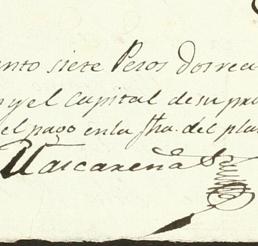 nto siete Pesos dos rea
y el Capital de su pro
el pago en la fha. del pla
Mascareña